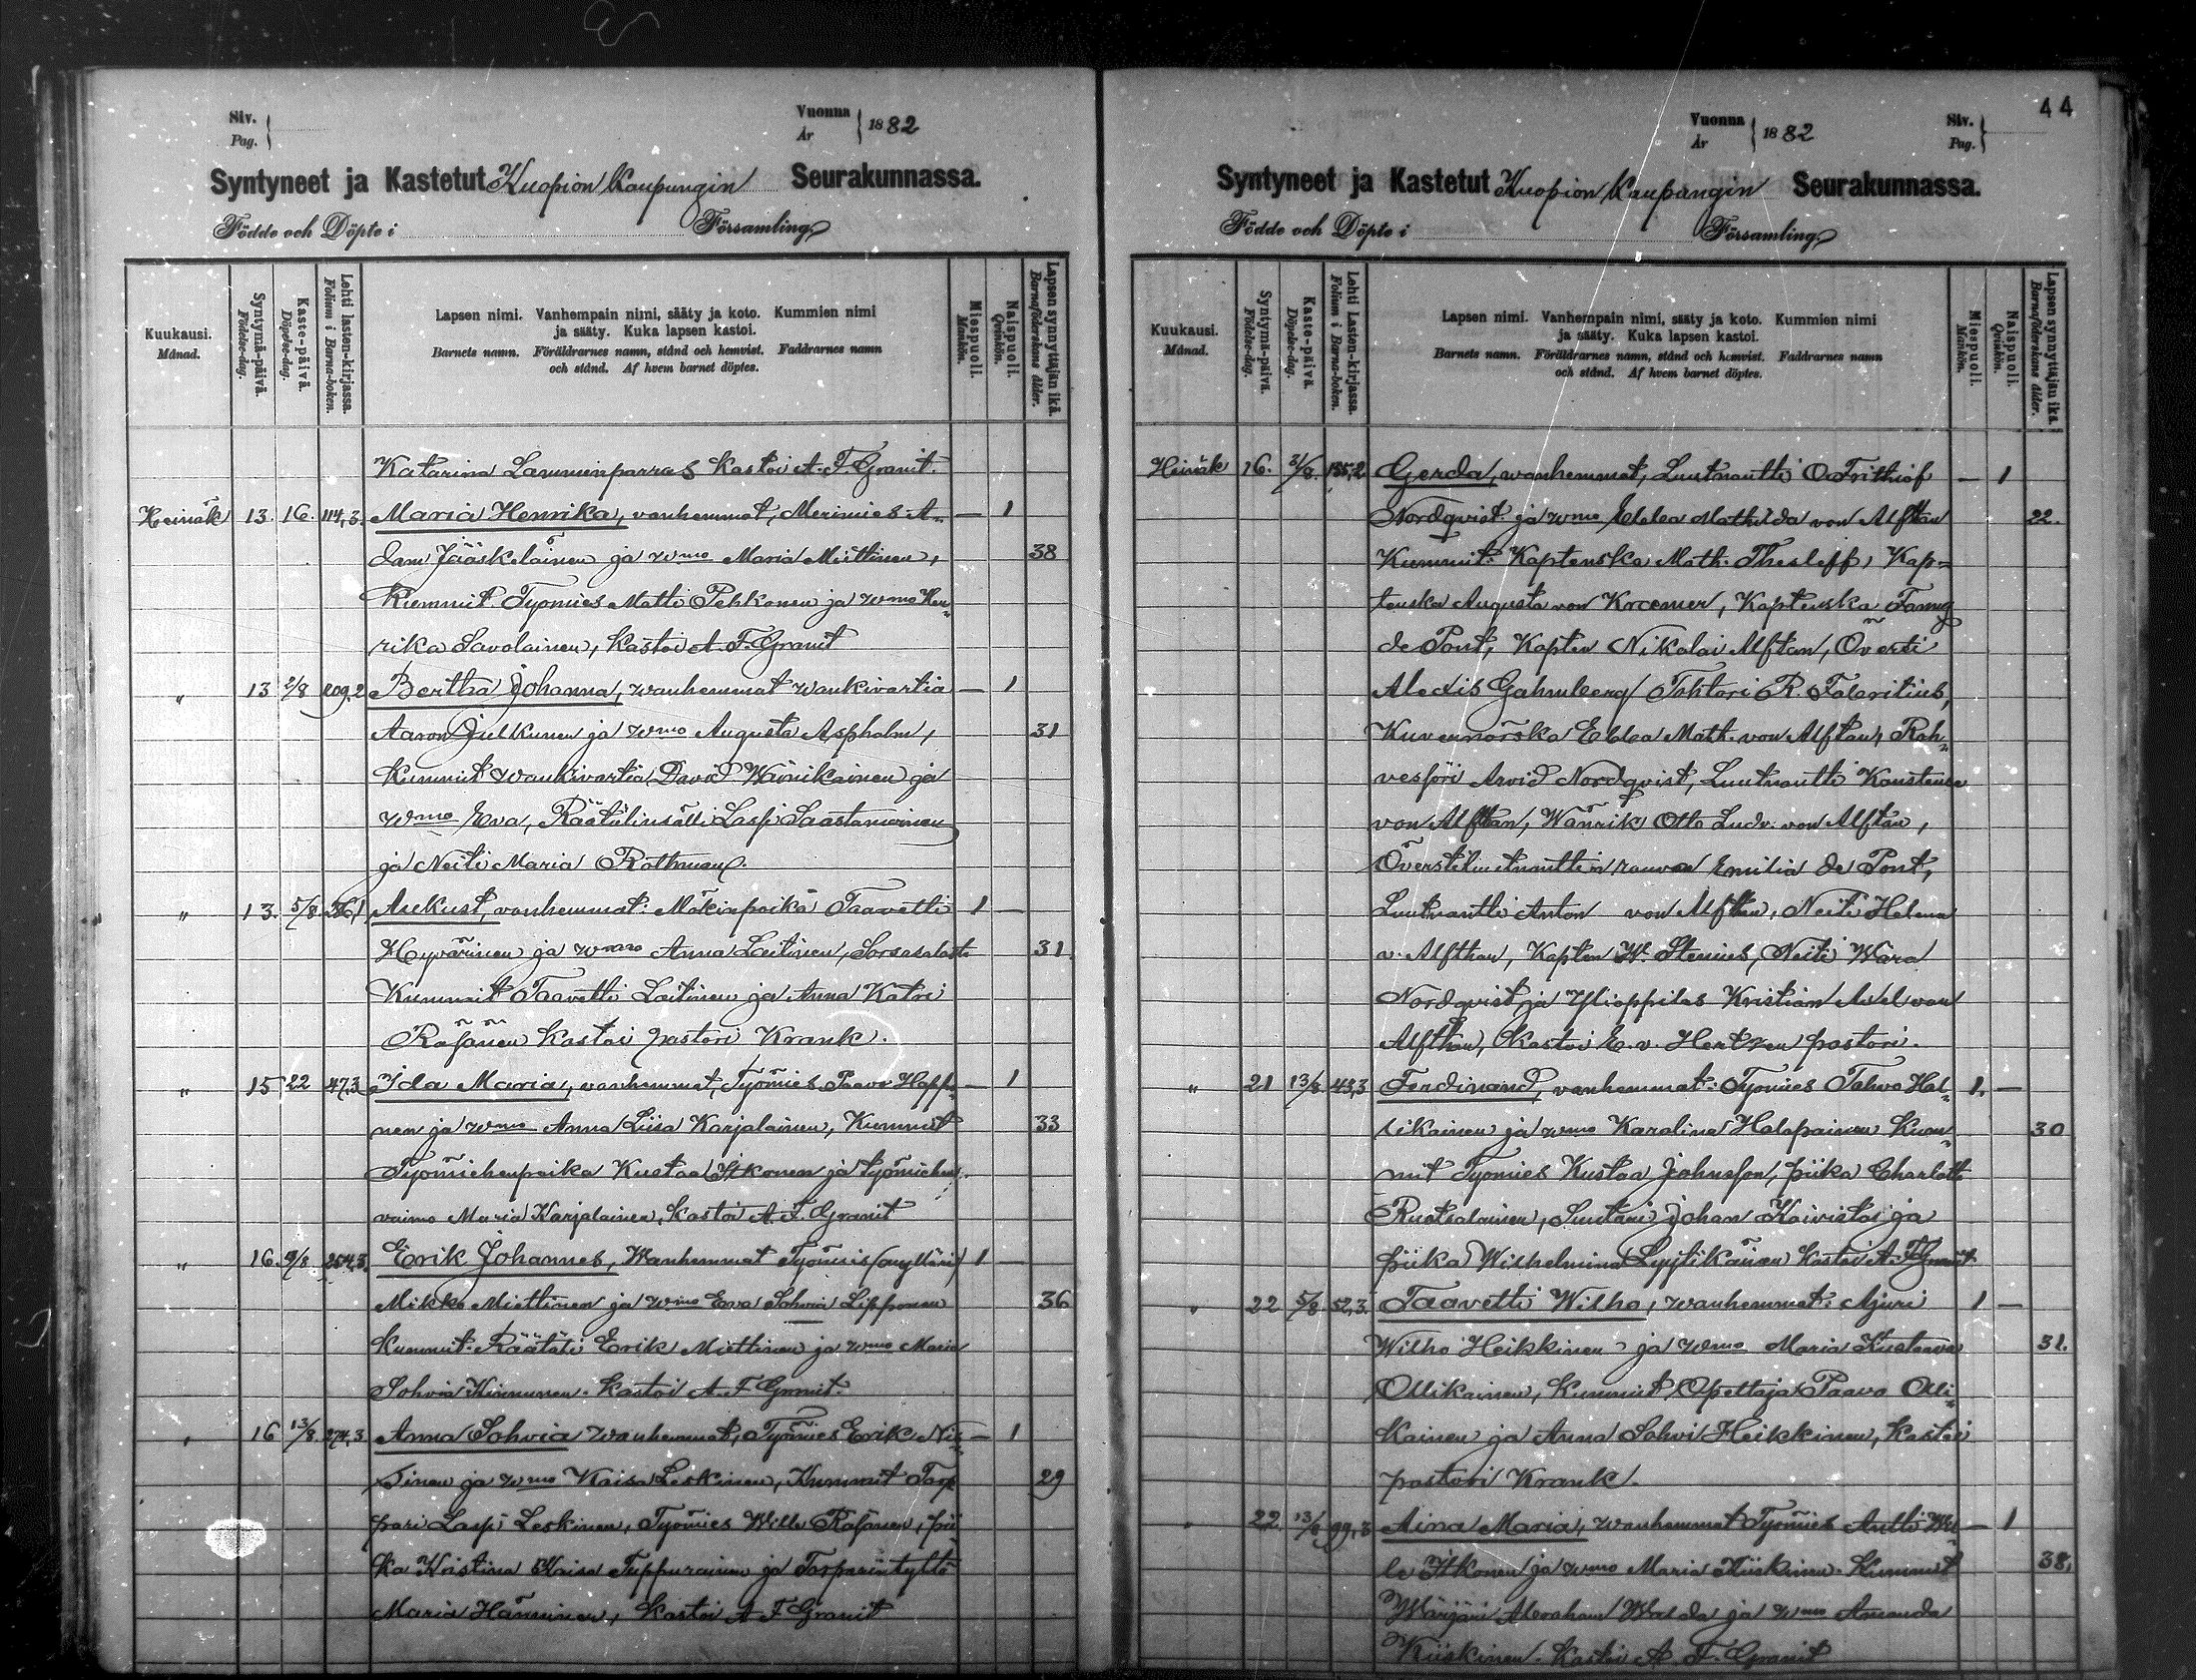 Siv.
Pag.
Vuonna
År
1882
Syntyneet ja Kastetut Kuopion Kaupungin Seurakunnassa.
Födde och Döpte i Församling
Kuukausi.
Månad.
Syntymä-päivä.
Födelse-dag.
Kaste-päivä.
Döpelse-dag.
Lehti lasten-kirjassa.
Folium i Barna-boken.
Lapsen nimi. Vanhempain nimi, sääty ja koto. Kummien nimi
ja sääty. Kuka lapsen kastoi.
Barnets namn. Föräldrarnes namn, stånd och hemvist. Faddrarnes namn
och stånd. Af hvem barnet döptes.
Miespuoli.
Mankön.
Naispuoli.
Qvinkön.
Lapsen synnyttäjän ikä.
Barnaföderskans ålder.
Katarina Lamminparras Kastoi A. F. Granit.
Heinäk 13. 16. 114,3. Maria Henrika, vanhemmat, Merimies A- — 1
dam Jääskeläinen ja wmo Maria Miettinen, 38
Kummit Tyomies Matti Pehkonen ja wmo Hen-
rika Savolainen, Kastoi A. F. Granit
" 13 2/8 209,2 Bertha Johanna, wanhemmat wankivartia — 1
Aaron Julkunen ja wmo Augusta Aspholm, 31
Kummit wankivartia David Wäinikainen ja
wmo Eva, Räätälinsälli Lasse Saastamoinen
ja Neiti Maria Rothman.
" 13. 5/8 36,1 Aukust, vanhemmat: Mäkinpoika Taavetti 1 —
Hyvärinen ja wmo Anna Laitinen, Sorsasalosta 31
Kummit Taavetti Laitinen ja Anna Katri
Räsänen Kastoi pastori Krank.
" 15 22 47,3 Ida Maria, vanhemmat, Tyomies Paavo Happo- — 1
nen ja wmo Anna Liisa Karjalainen, Kummit 33
Tyomiehenpoika Kustaa Itkonen ja tyomiehen
vaimo Maria Karjalainen, Kastoi A. F. Granit
" 16. 9/8 254,3. Erik Johannes, Wanhemmat Tyomies (mylläri) 1 —
Mikko Miettinen ja wmo Eva Sohvia Lipponen 36
Kummit: Räätäli Erik Miettinen ja wmo Maria
Sohvia Kinnunen. Kastoi A. F. Granit.
" 16 13/8 274,3 Anna Sohvia wanhemmat, Tyomies Erik Nis- — 1
sinen ja wmo Kaisa Leskinen, Kummit Torp-
pari Lassi Leskinen, Tyomies Wille Räsänen, pii-
ka Kristina Kaisa Tuppurainen ja Torparintyttö
Maria Hänninen, Kastoi A F Granit
44
Vuonna
År
1882
Siv.
Pag.
Syntyneet ja Kastetut Kuopion Kaupungin Seurakunnassa.
Födde och Döpte i Församling
Kuukausi.
Månad.
Syntymä-päivä.
Födelse-dag.
Kaste-päivä.
Döpelse-dag.
Lehti Lasten-kirjassa.
Folium i Barna-boken.
Lapsen nimi. Vanhempain nimi, sääty ja koto. Kummien nimi
ja sääty. Kuka lapsen kastoi.
Barnets namn. Föräldrarnes namn, stånd och hemvist. Faddrarnes namn
och stånd. Af hvem barnet döptes.
Miespuoli.
Mankön.
Naispuoli.
Qvinkön.
Lapsen synnyttäjän ikä.
Barnaföderskans ålder.
Heinäk 16. Gerda, wanhemmat, Luutnantti O. Frithiof — 1
Nordqvist ja wmo Ebba Mathilda von Alftan 22.
Kummit: Kaptenska Math. Thesleff, Kap-
tenska Augusta von Kraemer, Kaptenska Fanny
de Pont, Kapten Nikolai Alftan, Översti
Alexis Gahmberg Tohtori R. Fabritius,
Kuvernörska Ebba Math. von Alftan, Rah-
vesföri Arvid Nordqvist, Luutnantti
von Alftan, Wänrik Otto Ludv. von Alftan,
Överstiluutnanttin rouva Emilia de Pont,
Luutnantti Anton von Alfthan, Neiti Helena
v. Alfthan, Kapten W. Stenius, Neiti Wära
Nordqvist ja Ylioppilas Kristian Axel von
Alfthan, Kastoi E. v. Hertzen pastori.
" 21 13/8 43,3 Ferdinand, vanhemmat: Tyomies Tahvo Hal- 1. —
likainen ja wmo Karolina Holopainen Kum- 30
mit Tyomies Kustaa Johnsson, piika Charlotta
Ruotsalainen, Suutari Johan Koivistoi ja
piika Wilhelmina Lyytikäinen Kastoi A. F. Granit
" 22 5/8 52,3. Taavetti Wilho, wanhemmat: Ajuri 1 —
Wilho Heikkinen ja wmo Maria Kustaava 31.
Ollikainen, Kummit Opettaja Paavo Olli-
kainen ja Anna Sohvi Heikkinen, Kastoi
pastori Krank.
" 22 13/8 99,3 Aina Maria, wanhemmat Tyomies Antti Wil- — 1
le Itkonen ja wmo Maria Kiiskinen. Kummit 38.
Wärjäri Abraham ja wmo Amanda
Kiiskinen. Kastoi A. F. Granit